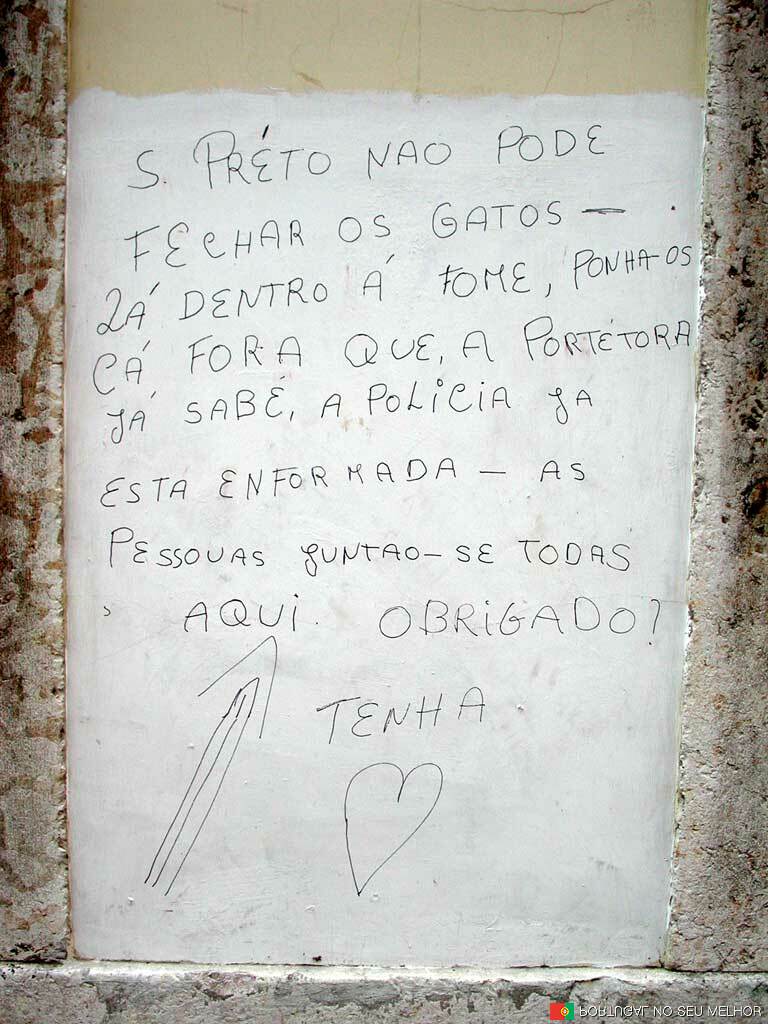 S. PRÉTO NAO PODE
FECHAR OS GATOS —
LÁ DENTRO Á FOME, PONHA-OS
CÁ FORA QUE, A PORTÉTORA
JÁ SABÉ, A POLICIA JA
ESTÁ ENFORMADA — AS
PESSOUAS JUNTAO-SE TODAS
AQUI. OBRIGADO?
TENHA
PORTUGAL NO SEU MELHOR